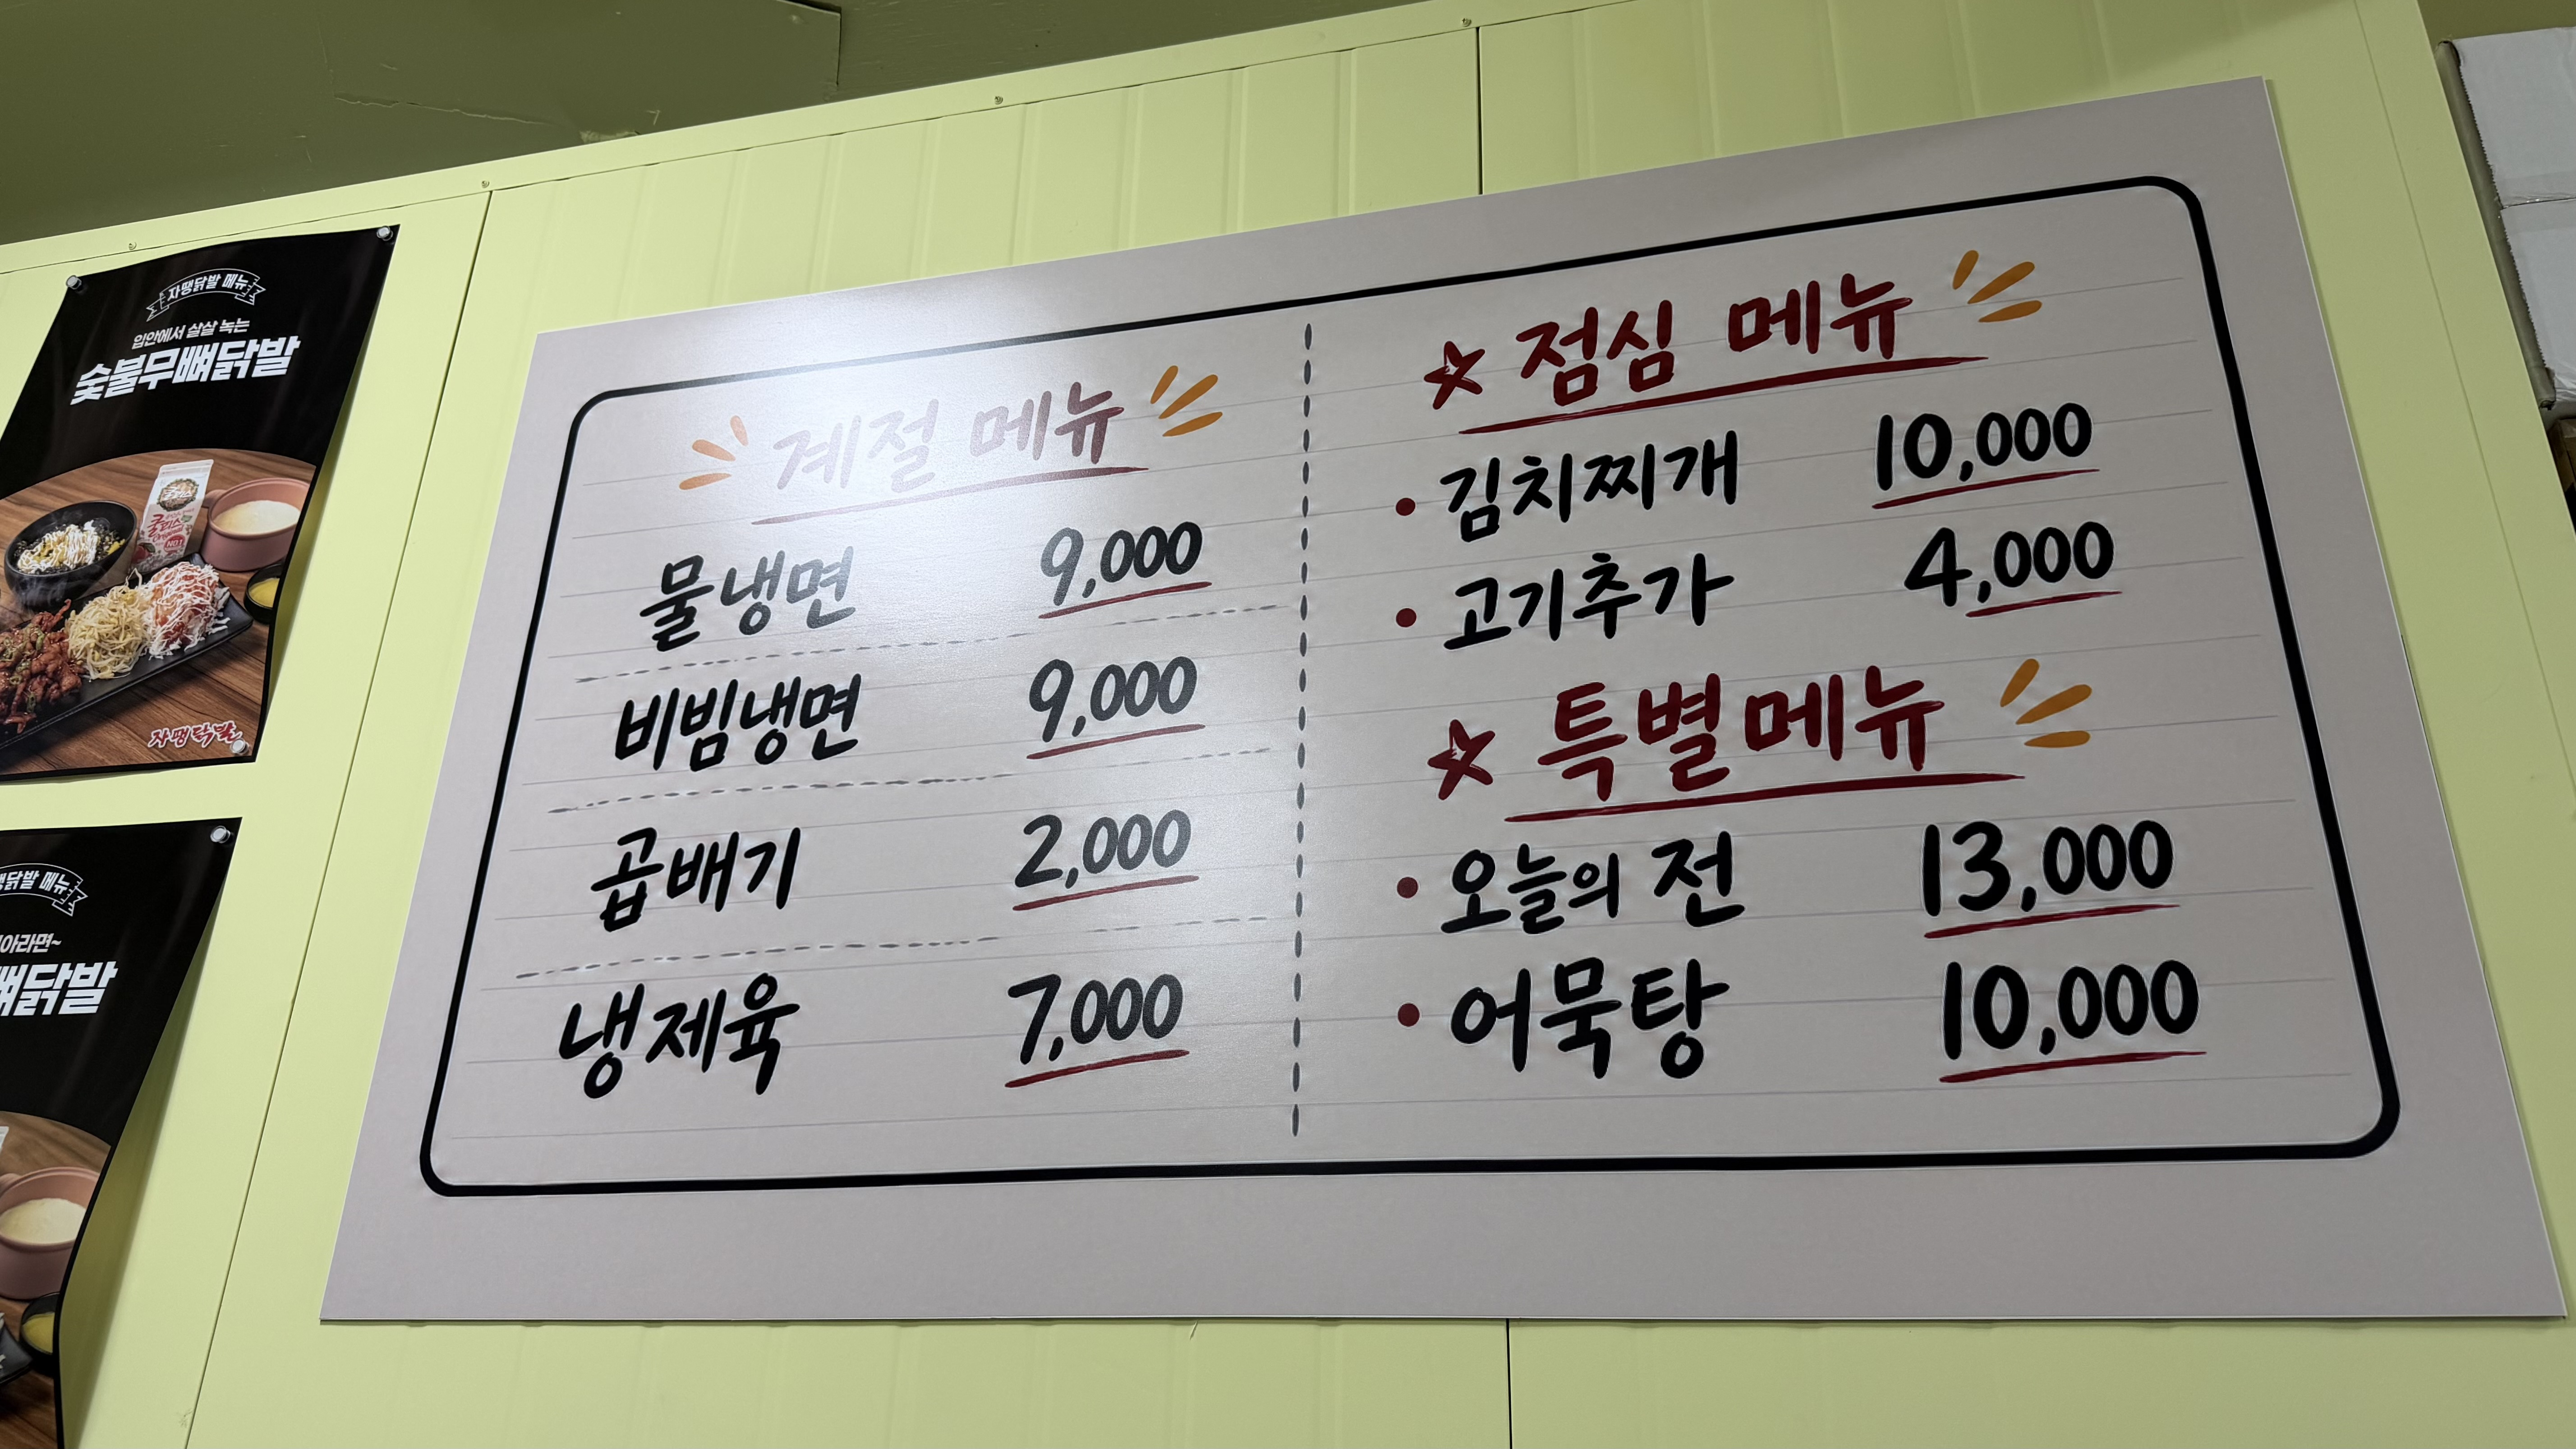 자땡닭발 메뉴
입안에서 살살 녹는
숯불무뼈닭발
쿨피스
자땡닭발
닭발 메뉴
아라면~
뼈닭발
계절 메뉴
물냉면 9,000
비빔냉면 9,000
곱배기 2,000
냉제육 7,000
점심 메뉴
• 김치찌개 10,000
• 고기추가 4,000
특별메뉴
• 오늘의 전 13,000
• 어묵탕 10,000